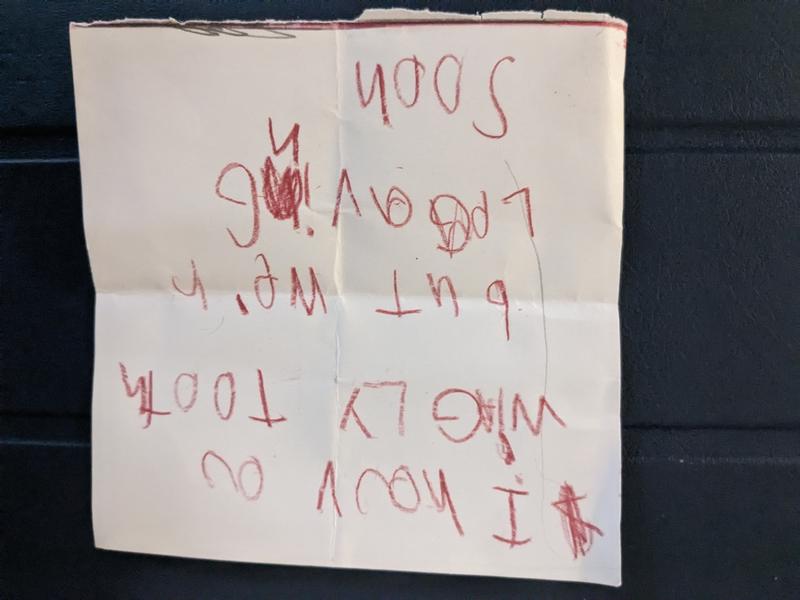 I hav a
WiGLY TOOTh
but We'r
Leaving
SOON